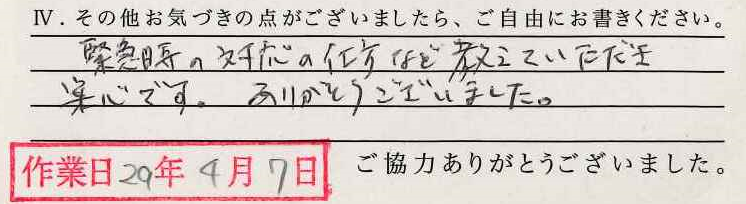 Ⅳ．その他お気づきの点がございましたら、ご自由にお書きください。
緊急時の対応の仕方など教えていただき
安心です。ありがとうございました。
作業日29年4月7日
ご協力ありがとうございました。